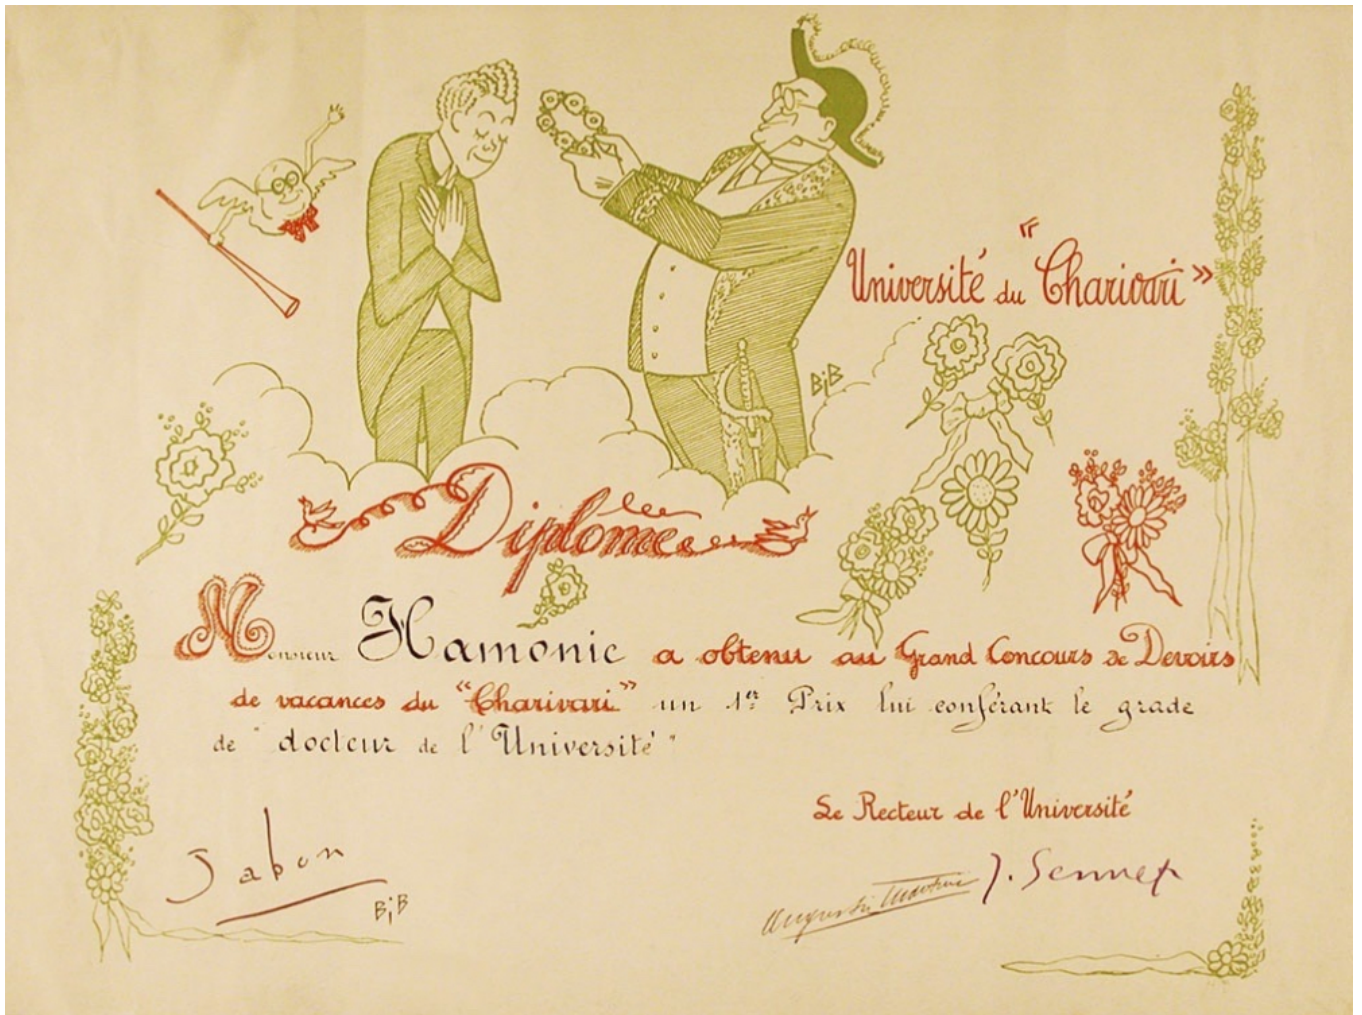 Université du "Charivari"
BiB
Diplôme
Monsieur Hamonic a obtenu au Grand Concours de Devoirs
de vacances du "Charivari" un 1er Prix lui conférant le grade
de "docteur de l'Université"
Le Recteur de l'Université
Jabon
BiB
J. Sennep